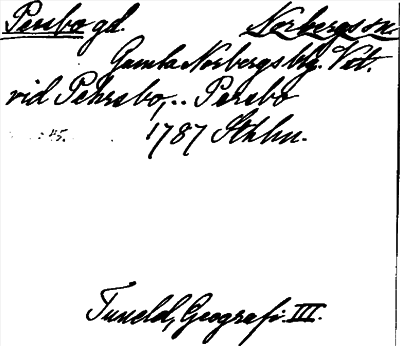 Persbo gd. Norbergs sn.
Gamla Norbergs bg. Vstm.
vid Pehrsbo, .. Persbo
: 45. 1787 Sthlm.
Tuneld, Geografi III.